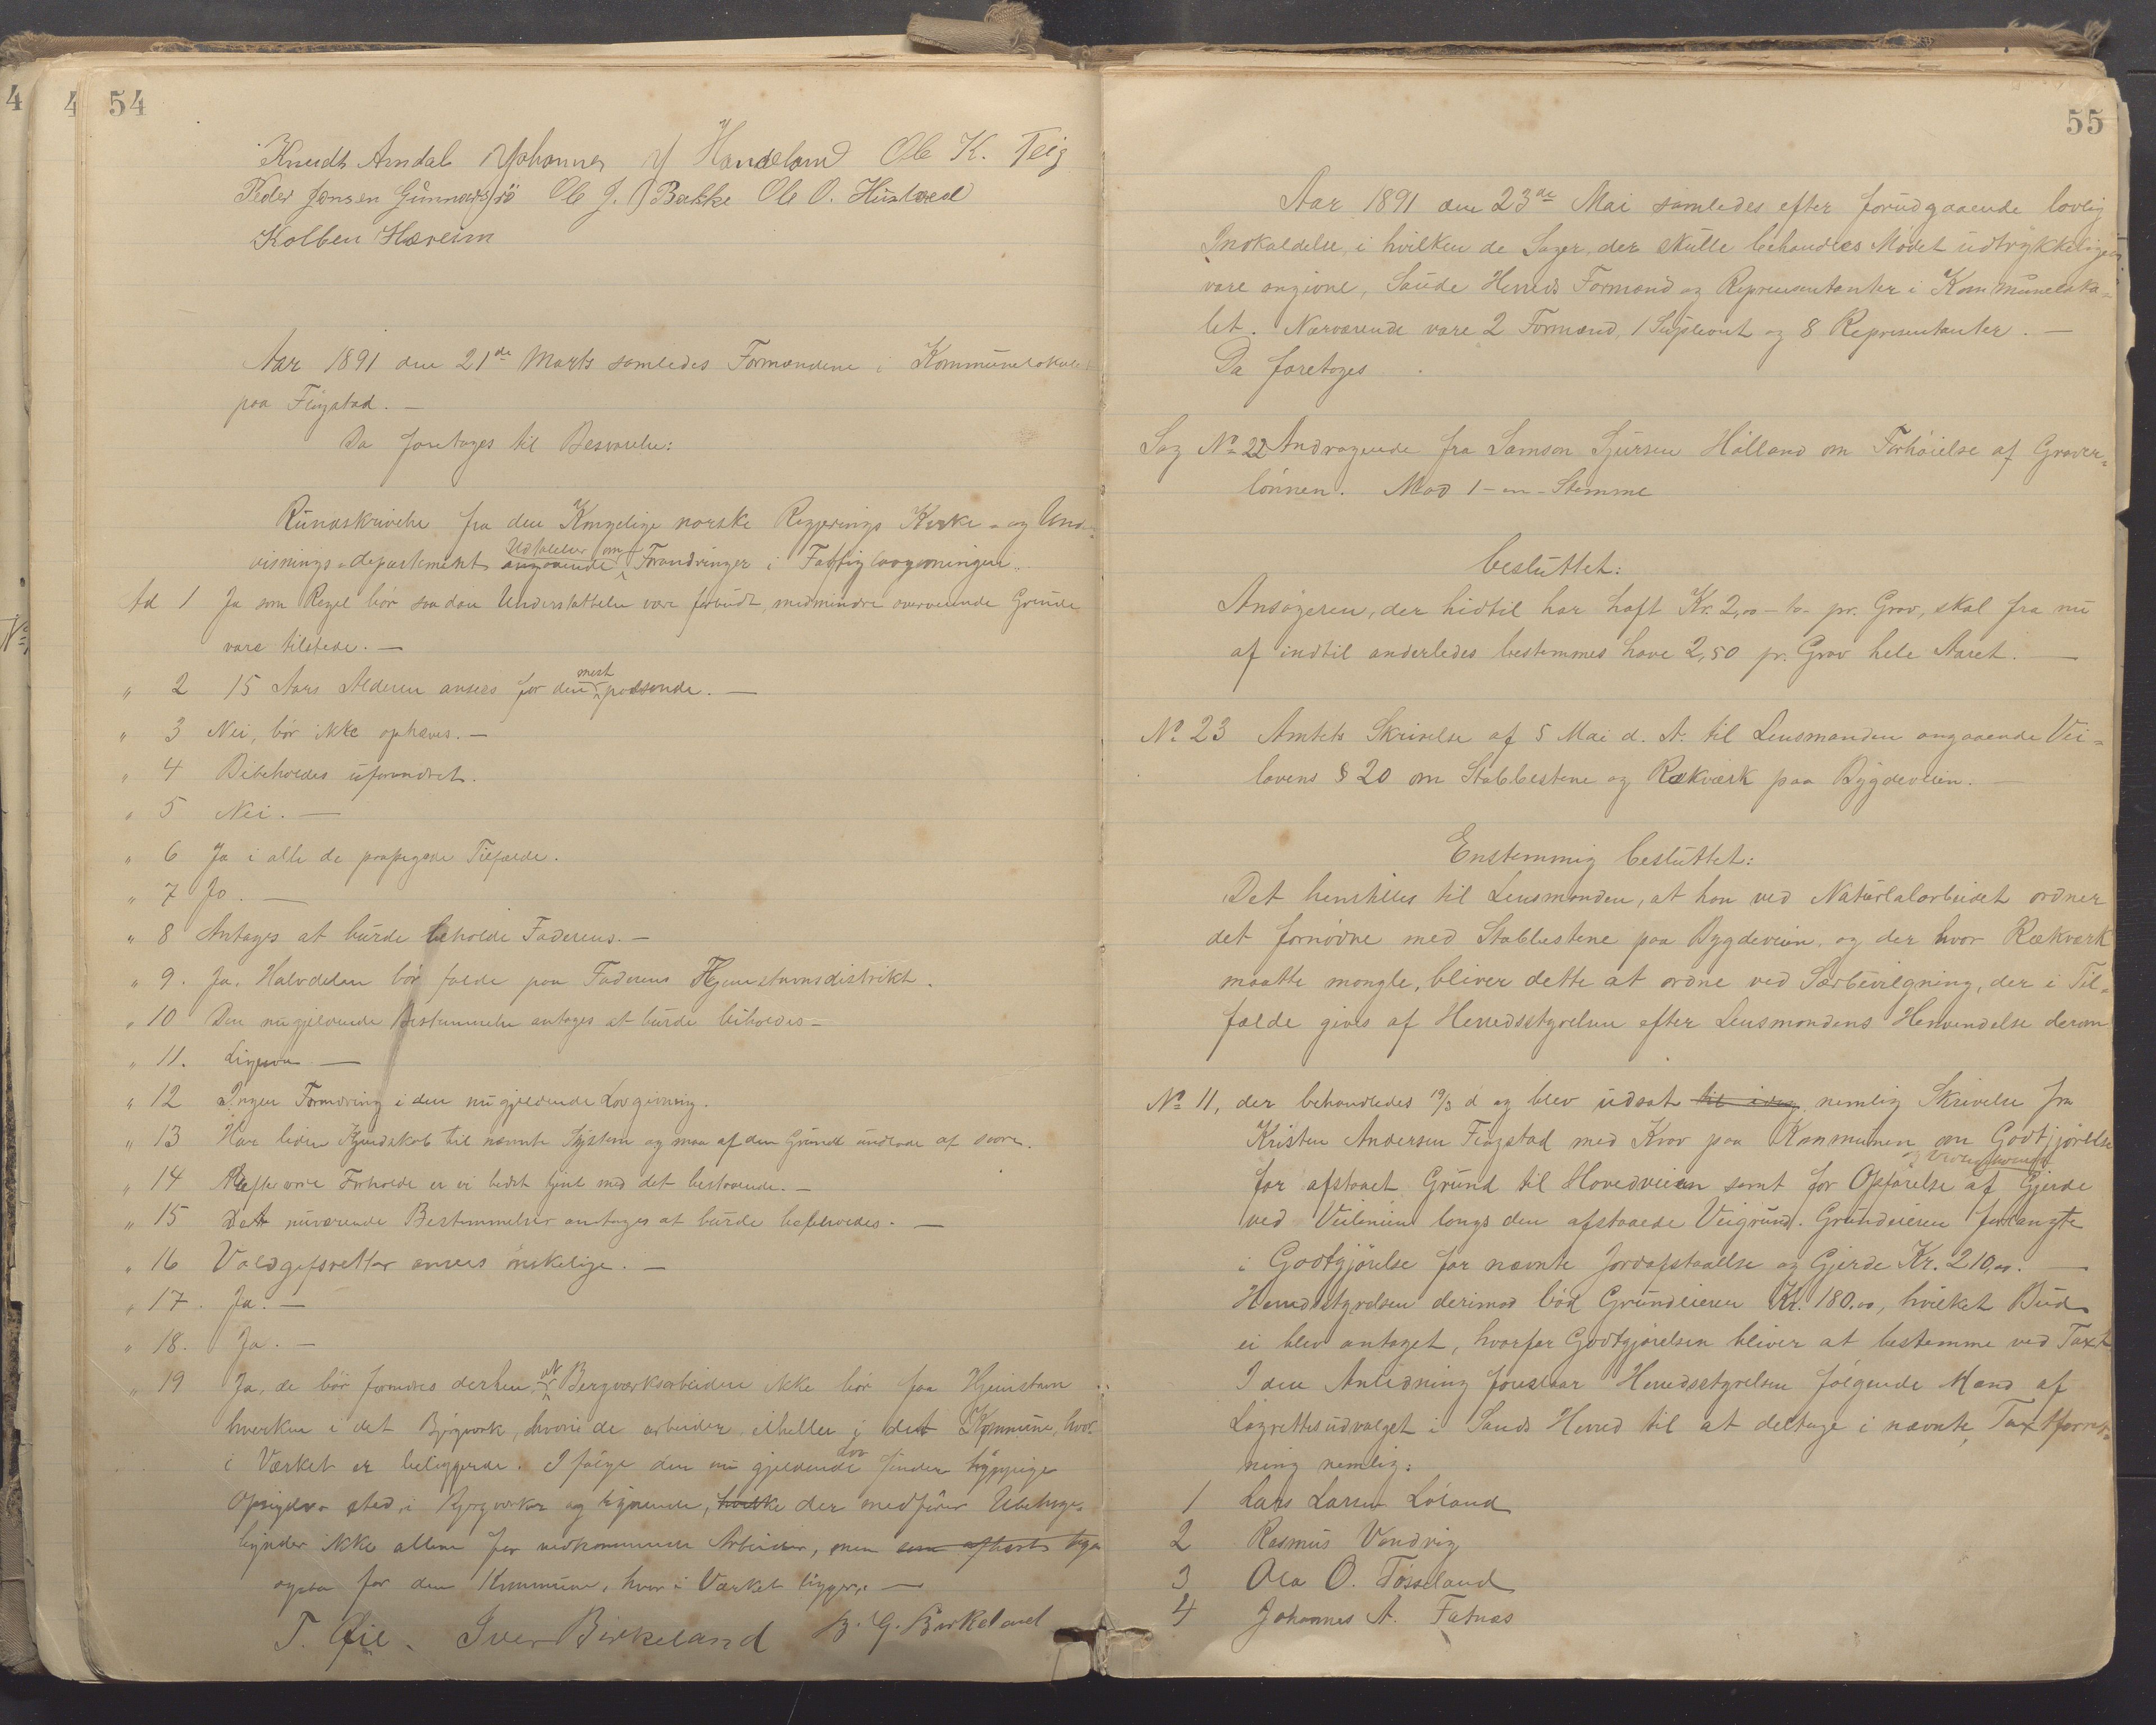 54
Knudt Arndal Johannes J Handeland Ole K. Teig
Peder Jensen Gunnarsjö Ole J. Bakke Ole O. Hustved
Kolben Høreim
Aar 1891 den 21de Marts samledes Formændene i Kommunelokalet
paa Fingstad. —
Da foretoges til Besvarelse:
Rundskrivelse fra den Kongelige norske Regjerings Kirke- og Und-
visnings-departement angaaende Udtalelser om Forandringer i Fattiglovgivningen.
Ad 1 Ja som Regel bör saadan Understøttelse være forbudt, medmindre overveiende Grunde
vare tilstede. —
" 2 15 Aars Alderen ansees for den mest passende. —
" 3 Nei, bör ikke ophæves. —
" 4 Bibeholdes uforandret.
" 5 Nei. —
" 6 Ja i alle de paapegede Tilfælde.
" 7 Jo. —
" 8 Antages at burde beholde Faderens. —
" 9. Ja. Halvdelen bör falde paa Faderens Hjemstavnsdistrikt.
" 10 Den nugjeldende Bestemmelse antages at burde beholdes —
" 11. Ligesaa —
" 12 Ingen Forandring i den nu gjeldende Lovgivning.
" 13 Har liden Kjendskab til nævnte System og maa af den Grund undlade at svare.
" 14 Efter vore Forholde er vi bedst tjent med det bestaaende. —
" 15 Det nuværende Bestemmelser antages at burde beholdes. —
" 16 Voldgiftsretter ansees ønskelige. —
" 17. Ja. —
" 18. Ja. —
" 19 Ja, de bör forandres derhen, at Bergværksarbeidere ikke bör faa Hjemstavn
hverken i det Bjergværk, hvori de arbeider, ilheller i den Kommune, hvor
i Værket er beliggende. I følge den nu gjeldende Lov finder hyppige
Opsigelser sted i Bjergværker og lignende, hvilke der medfører Ubehage-
ligheder ikke allene for vedkommende Arbeider, men
ogsaa for den Kommune, hvor i Værket ligger. —
T. Øie. Iver Birkeland B. G. Birkeland
55
Aar 1891 den 23de Mai samledes efter forudgaaende lovlig
Indkaldelse, i hvilken de Sager, der skulle behandles Mødet udtrykkeligen
vare angivne, Saude Herreds Formænd og Repræsentanter i Kommuneloka-
let. Nærværende vare 2 Formænd, 1 Supleant og 8 Representanter. —
Da foretoges
Sag No 22 Andragende fra Samson Sjursen Hålland om Forhøielse af Graver-
lönnen. Mod 1 - en - Stemme
besluttet:
Ansøgeren, der hidtil har haft Kr. 2,00 - to - pr. Grav, skal fra nu
af indtil anderledes bestemmes have 2,50 pr. Grav hele Aaret. —
No 23 Amtets Skrivelse af 5 Mai d. A. til Lensmanden angaaende Vei-
lovens § 20 om Stabbestene og Rækværk paa Bygdeveien. —
Enstemmig besluttet:
Det henstilles til Lensmanden, at han ved Naturalarbeidet ordner
det fornødne med Stabbestene paa Bygdeveien, og der hvor Rækværk
maatte mangle, bliver dette at ordne ved Særbevilgning, der i Til-
fælde gives af Herredsstyrelsen efter Lensmandens Henvendelse derom
No 11, der behandledes 19/3 d og blev udsat til idag, nemlig Skrivelse fra
Kristen Andersen Fingstad med Krav paa Kommunen om Godtgjörelse
for afstaaet Grund til Hovedveien samt for Opførelse og Vedligehold af Gjerde
ved Veilinien langs den afstaaede Veigrund. Grundeieren forlangte
i Godtgjörelse for nævnte Jordafstaaelse og Gjerde Kr. 210,00. —
Herredsstyrelsen derimod böd Grundeieren Kr. 180.00, hvilket Bud
ei blev antaget, hvorfor Godtgjörelsen bliver at bestemme ved Taxt
I den Anledning foreslaar Herredsstyrelsen følgende Mænd af
Lagrettesudvalget i Sauds Herred til at deltage i nævnte Taxtforret-
ning nemlig:
1 Lars Larsen Löland
2 Rasmus Vandvig
3 Ola O. Tösseland
4 Johannes A. Fatnæs